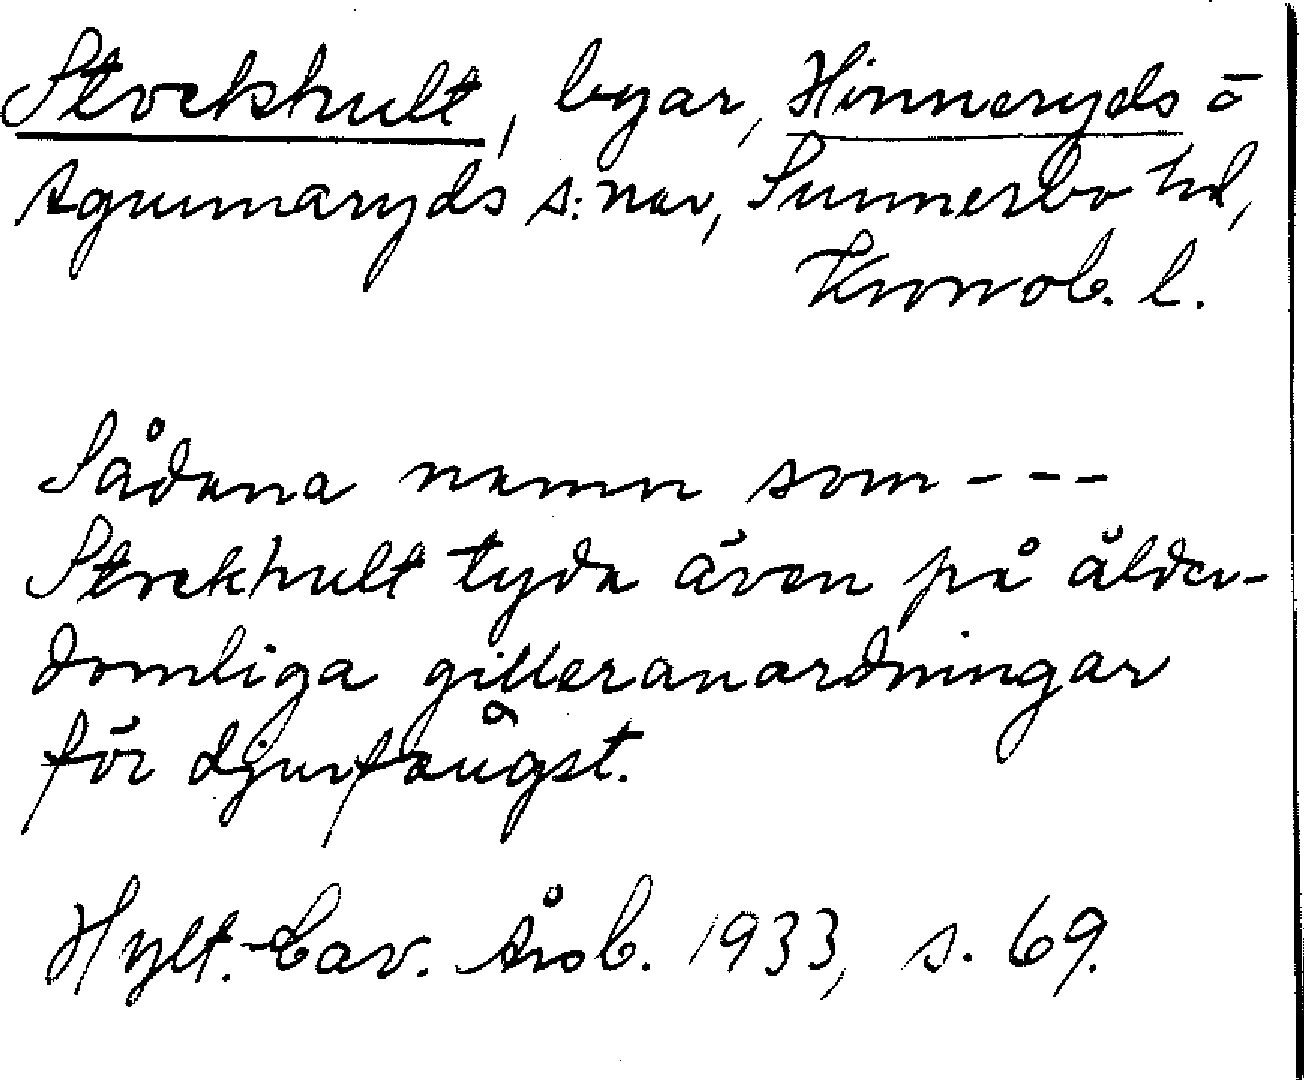 Stockhult, byar, Hinneryds o
Agunnaryds s:nar, Sunnerbo hd,
Kronob. l.
Sådana namn som - - -
Stockhult tyda även på ålder-
domliga gilleranordningar
för djurfångst.
Hylt.-Cav. Årsb. 1933, s. 69.